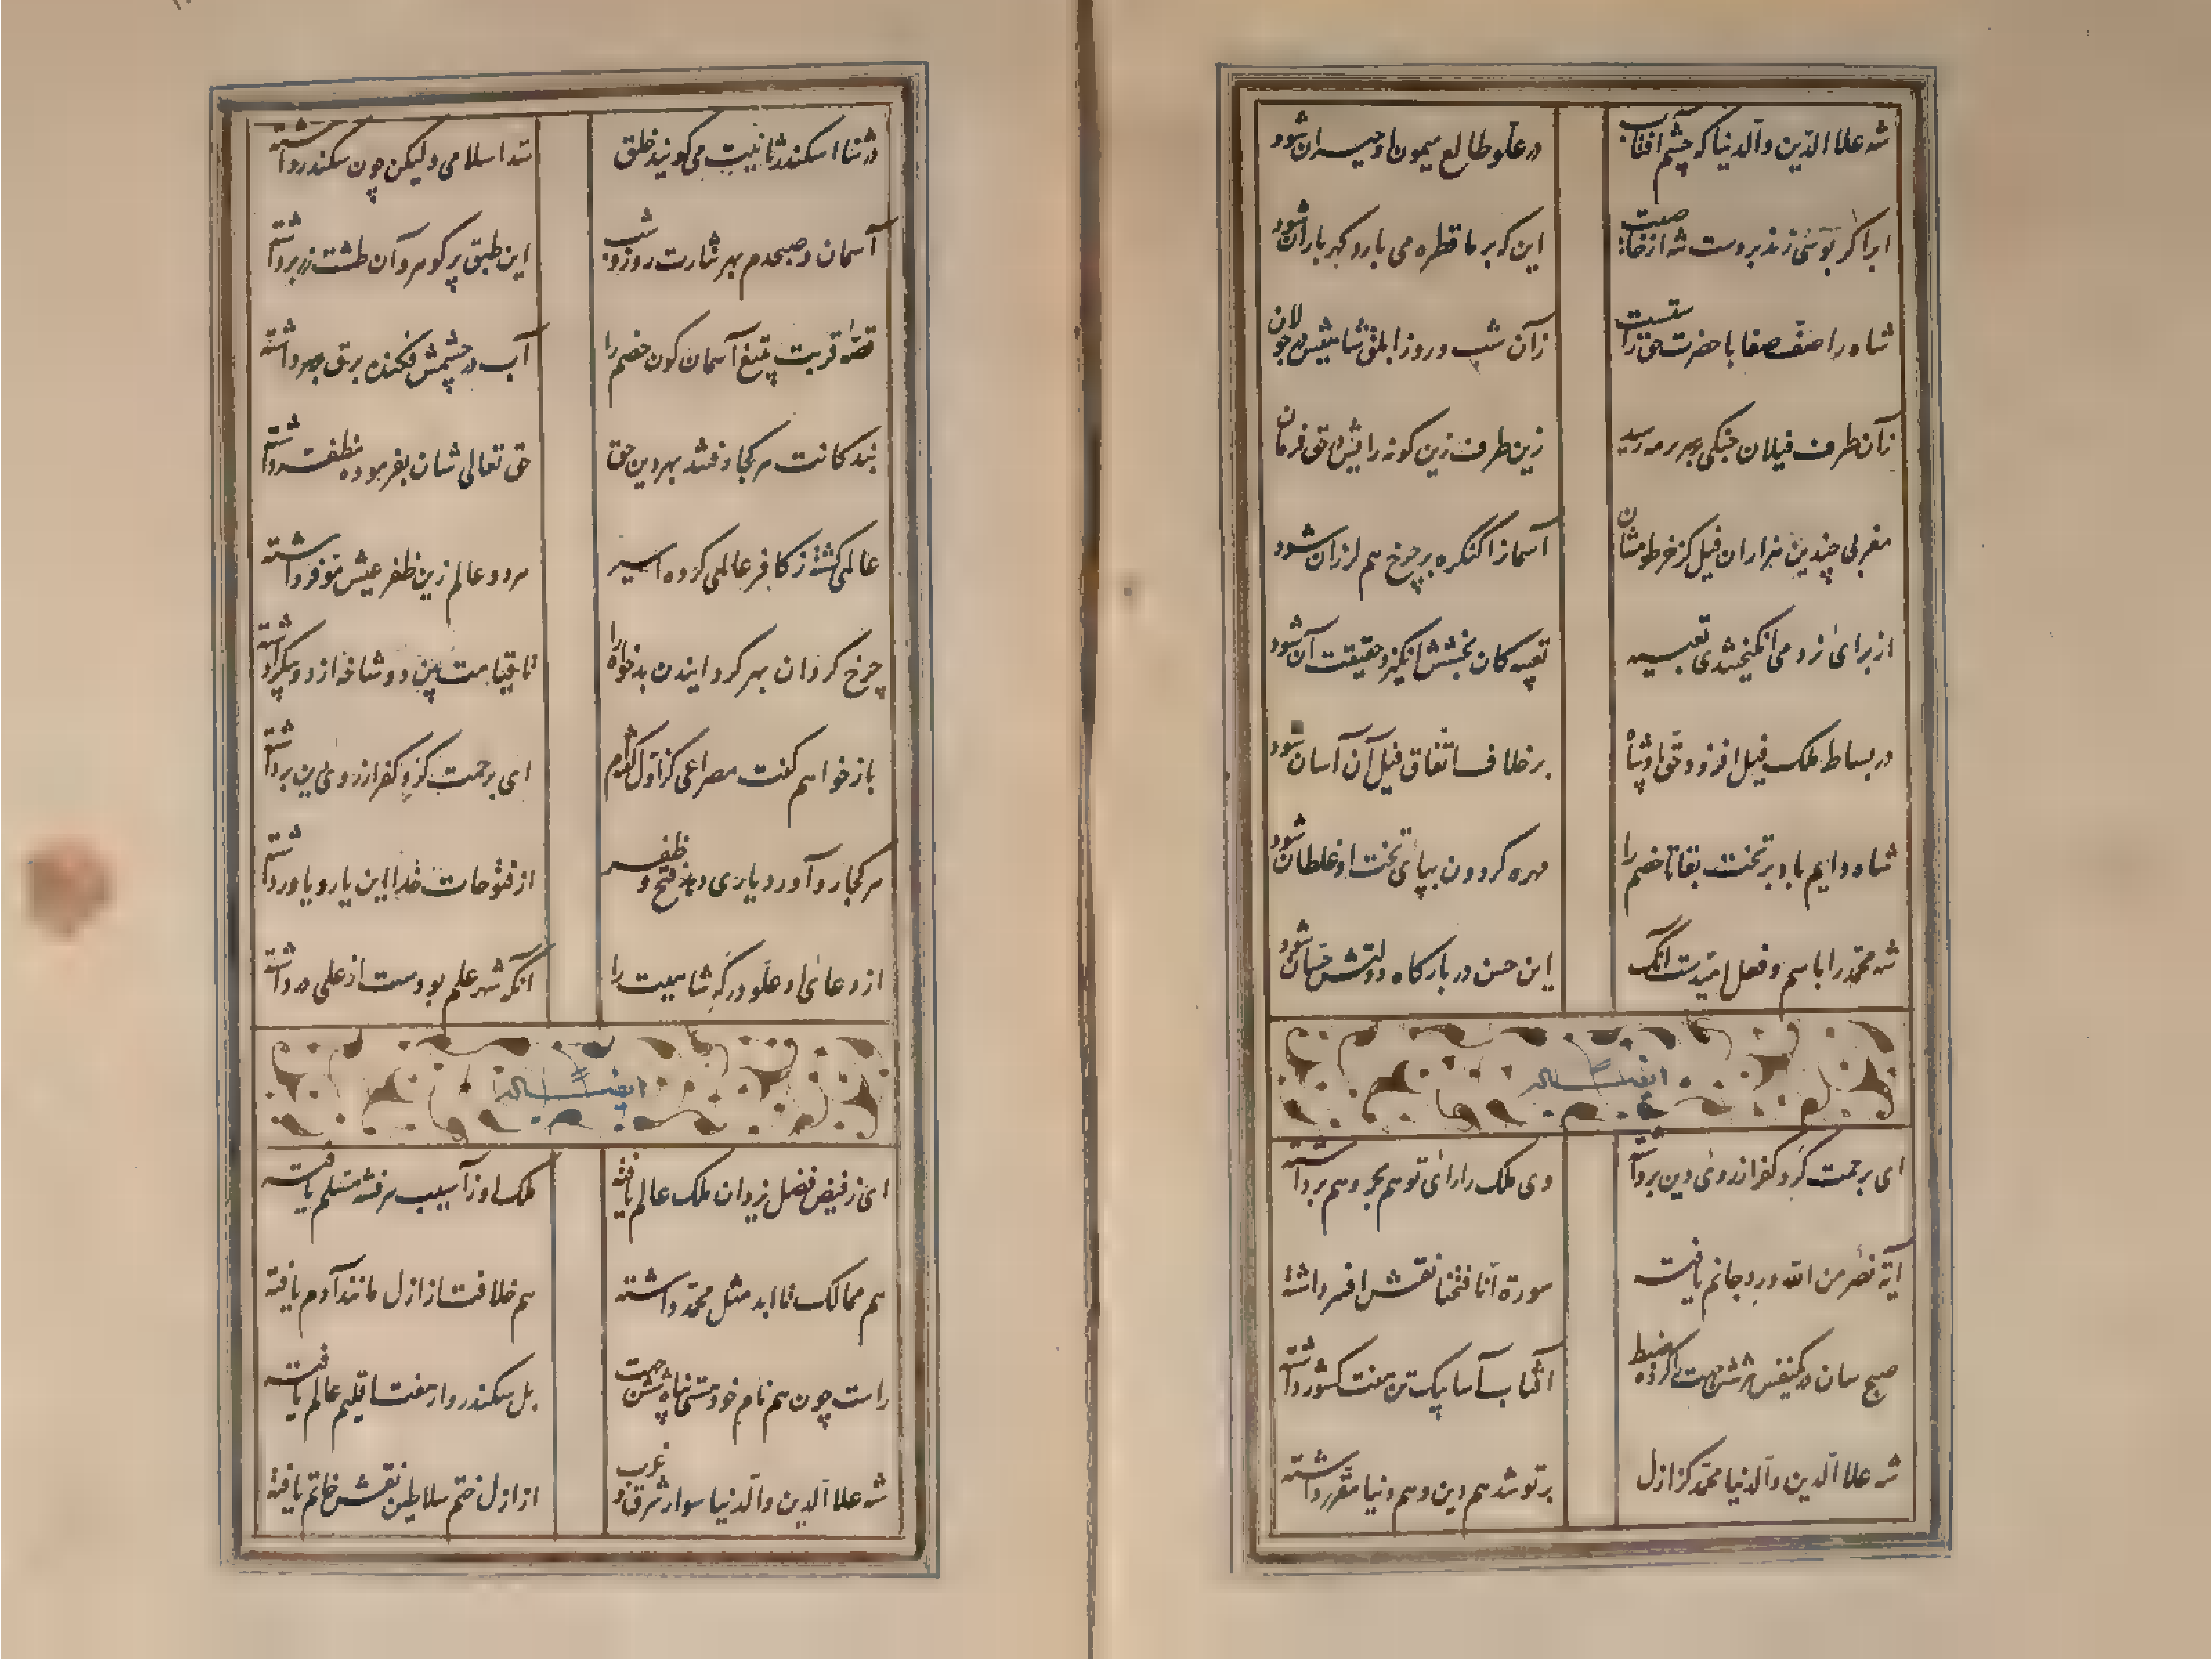 شه علاء الدین والدنیا که چشم آفتاب در علو طالع میمون او حیران شود
ابر اگر بوسی زند بر دست شه از خاصیت این که بر ما قطره می بارد گهر باران شود
شاه را صف صفا با حضرت حق راستست زآن شب و روز ابلق شاهیش در جولان شود
زآن طرف فیلان جنگی بر رمه رسید زین طرف زین گونه رایش حق فرمان
مغربی چندین هزاران فیل کز خرطومشان آسمانرا کنگره بر چرخ هم لرزان شود
از برای زر و می انگیختندی تعبیه تعبیه کان بخشش انگیزد حقیقت آن شود
در بساط ملک فیل افزود حق پادشاه بر خلاف اتفاق فیل آن آسان شود
شاه دایم باد بر تخت بقا تا خصم را مهره گردون بپای تخت او غلطان شود
شه محمد را باسم و فعل امیدست آنک این حسن در بارگاه دولتش حسان شود
ایضاً له
ای برحمت گرد کفر از روی دین برداشته وی ملک را رای تو هم بحر و هم بر داشته
آیة نصر من الله در دو جانم یافته سورة انا فتحنا نقش افسر داشته
صبح سان در یکنفس هر شش جهت کرده ضبط آفتاب آسا بیک تن هفت کشور داشته
شه علاء الدین والدنیا محمد کز ازل بر تو شد هم دین و هم دنیا مقرر داشته
در ثنا اسکندر ثانیت می گویند خلق شد اسلامی ولیکن چون سکندر داشته
آسمان و صبحدم بهر نثارت روز و شب این طبق پر گوهر و آن طشت زر بر داشته
قصه قربت تیغ آسمان گون خصم را آب در چشمش فکنده برق بر سر داشته
بندگانت هر کجا رفتند بهر دین حق حق تعالی شان بغر بوده مظفر داشته
عالمی کشته ز کافر عالمی کرده اسیر هر دو عالم زین ظفر عیش موفر داشته
چرخ گردان بهر گرد ایندن بدخواه را تا قیامت این دو شاخه از دو پیکر داشته
باز خواهم گفت مصراعی کز اول گفته ام ای برحمت گرد کفر از روی دین برداشته
هر کجا رو آورد یاری دهد فتح و ظفر از فتوحات خدا این یار و یاور داشته
از دعای او علو درگه شاهیت را آنک شهر علم بودست از علی در داشته
ایضاً له
ای ز فیض فضل یزدان ملک عالم یافته ملک او ز آسیب هر فتنه مسلم یافته
هم ممالک تا ابد مثل محمد داشته هم خلافت از ازل مانند آدم یافته
راست چون هم نام خود مستی پناه شش جهت بل سکندر وار هفت اقلیم عالم یافته
شه علاء الدین والدنیا سوار شرق و غرب از ازل ختم سلاطین نقش خاتم یافته